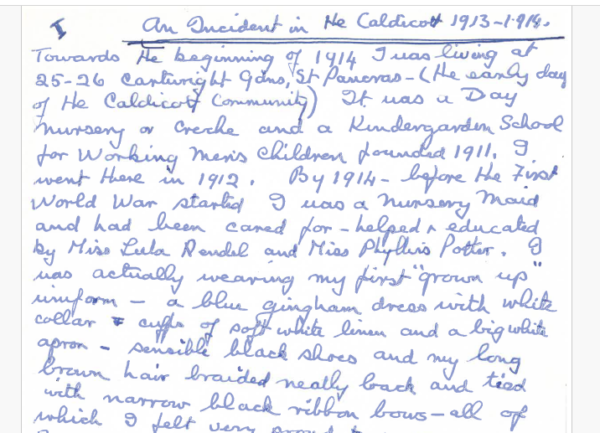 I
An Incident in He Caldicott 1913-1914.
Towards He beginning of 1914 I was living at
25-26 Cartwright Gdns, St Pancras - (He early day
of He Caldicott Community) It was a Day
Nursery or Creche and a Kindergarden School
for Working Mens Children founded 1911. I
went there in 1912. By 1914 - before He First
World War started I was a Nursery Maid
and had been cared for - helped & educated
by Miss Lula Rendel and Miss Phyllis Potter. I
was actually wearing my first "grown up"
uniform - a blue gingham dress with white
collar & cuffs of soft white linen and a big white
apron - sensible black shoes and my long
brown hair braided neatly back and tied
with narrow black ribbon bows - all of
which I felt very